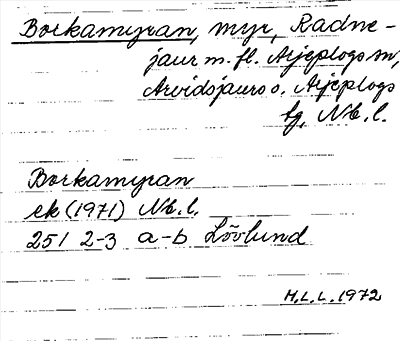 Borkamyran, myr, Radne-
jaur m. fl. Arjeplogs sn,
Arvidsjaurs o. Arjeplogs
tg, Nb. l.
Borkamyran
ek (1971) Nb. l.
25 I 2-3 a-b Lövlund
H.L.L. 1972